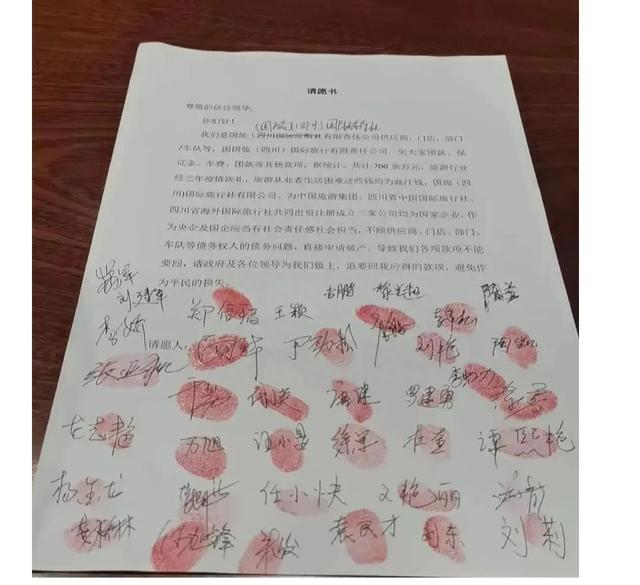 请愿书
尊敬的信访领导:
你们好!
(国旅(四川)国际旅行社
我们是国旅(四川国际旅行社有限责任公司供应商、门店、部门
/车队等,因国旅(四川)国际旅行有限责任公司,欠大家团款、保
证金、车费、团款等其他款项,据统计,共计700余万元,旅游行业
经三年疫情洗礼,旅游从业者生活困难这些钱均为血汗钱,国旅(四
川)国际旅行社有限公司、为中国旅游集团、四川省中国国际旅行社、
四川省海外国际旅行社共同出资注册成立三家公司均为国家企业,作
为央企及国企应当有社会责任感社会担当,不顾供应商、门店、部门、
车队等债务权人的债务问题,直接申请破产,导致我们各项款项不能
要回,请政府及各位领导为我们做主,追要回我应得的款项,避免作
为平民的损失。
吉鹏
王颖
请愿人:
刘艳
唐建 罗建勇
龙志超 万旭 汪小星 徐军 谭熙艳
杨金龙 任小快 文艳丽
袁民才 刘东 刘莉